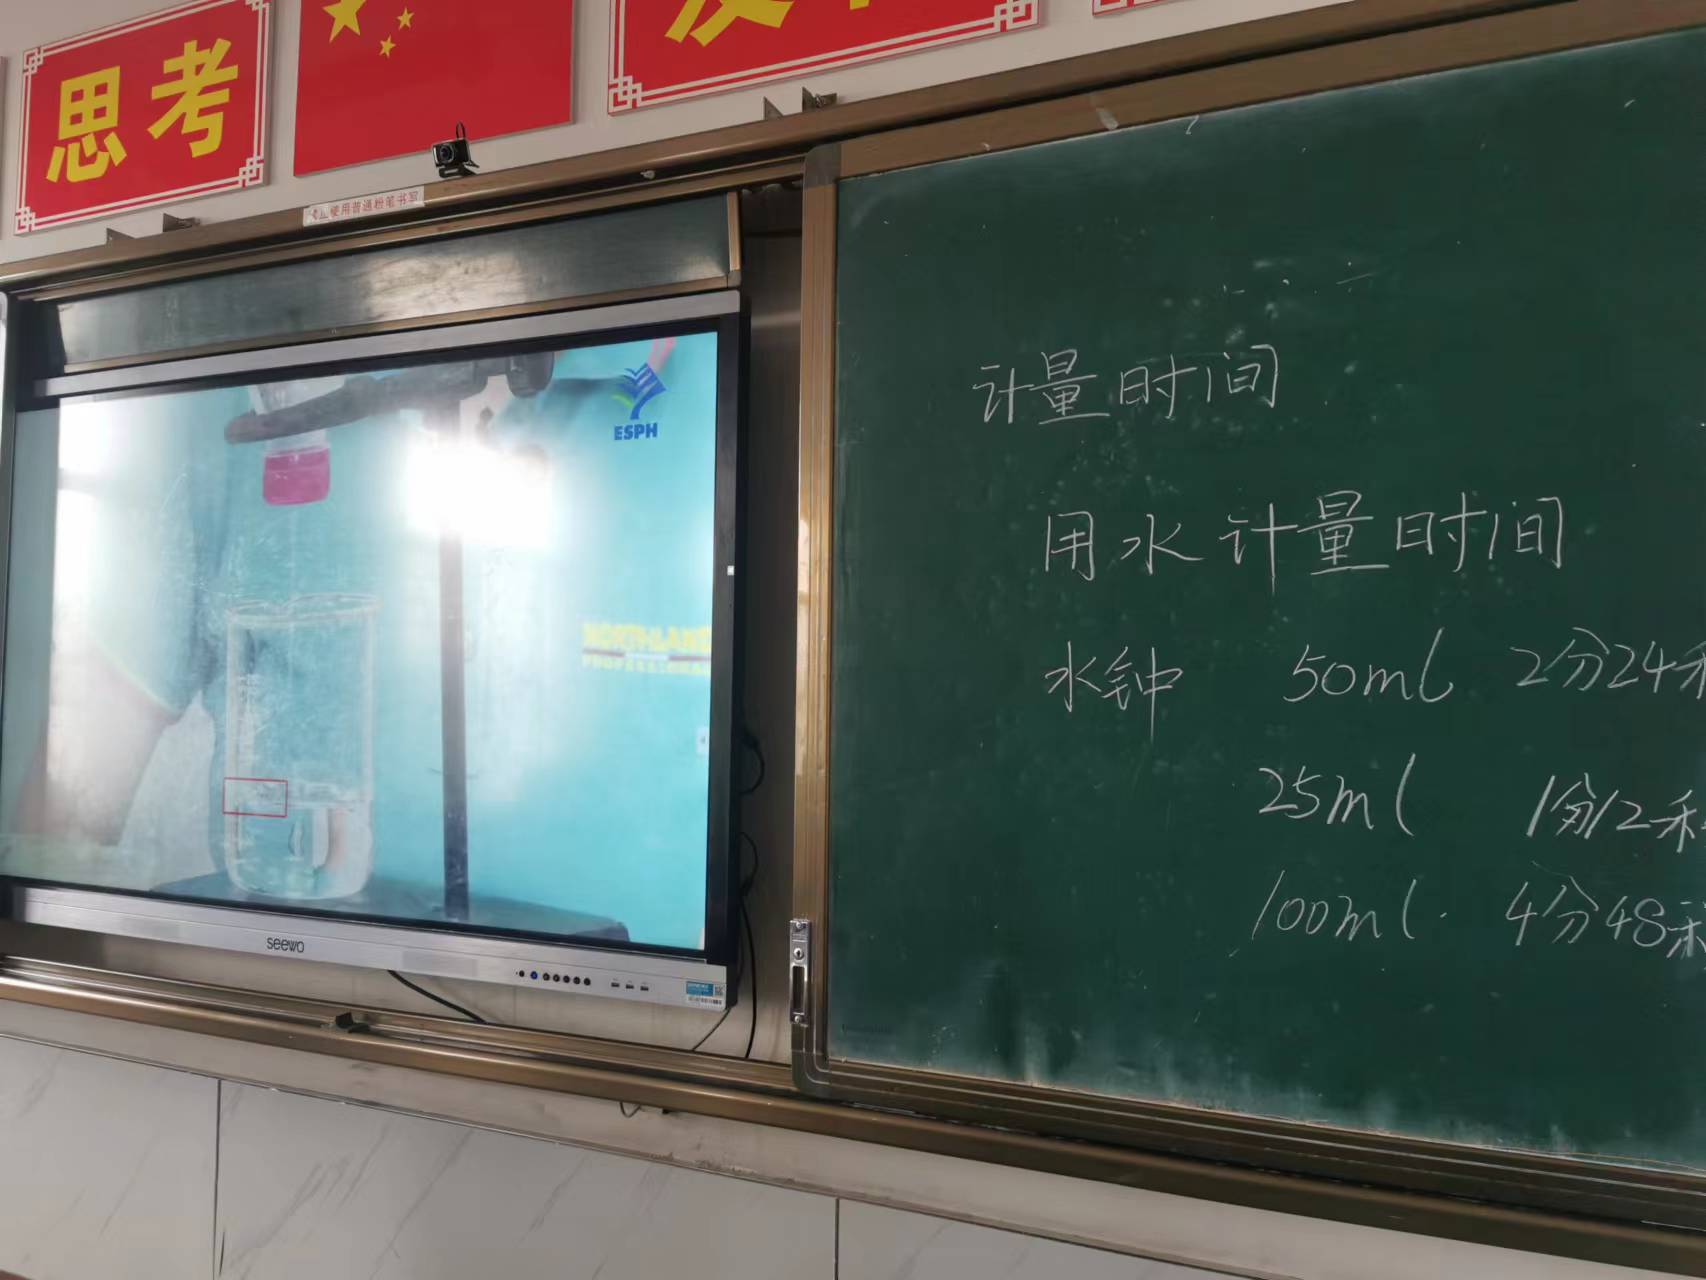 思考
禁止使用普通粉笔书写
ESPH
NORTHLAND
PROFESSIONAL
seewo
计量时间
用水计量时间
水钟 50ml 2分24秒
25ml 1分12秒
100ml 4分48秒